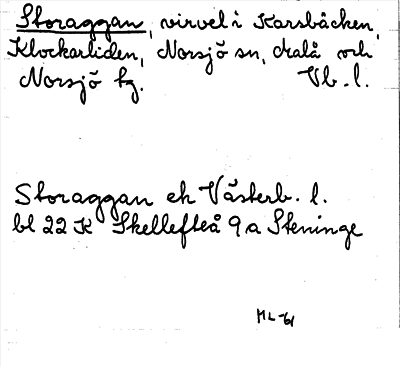 Storaggan, virvel i Karsbäcken,
Klockarliden, Norsjö sn, Malå och
Norsjö tg. Vb. l.
Storaggan ek Västerb. l.
bl 22 K Skellefteå 9 a Steninge
ML-61